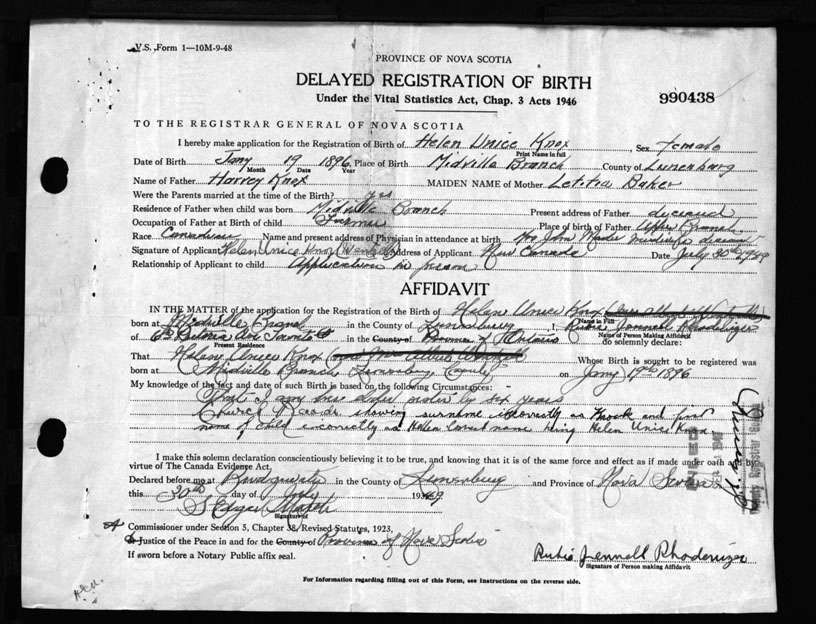 V.S. Form 1—10M-9-48
PROVINCE OF NOVA SCOTIA
DELAYED REGISTRATION OF BIRTH
Under the Vital Statistics Act, Chap. 3 Acts 1946
990438
TO THE REGISTRAR GENERAL OF NOVA SCOTIA
I hereby make application for the Registration of Birth of Helen Unice Knox, Sex female
Print Name in full
Date of Birth Jany 19 1896, Place of Birth Midville Branch County of Lunenburg
Month Date Year
Name of Father Harvey Knox MAIDEN NAME of Mother Letitia Baker
Were the Parents married at the time of the Birth? yes
Residence of Father when child was born Midville Branch Present address of Father deceased
Occupation of Father at Birth of child Farmer Place of birth of Father Upper Branch
Race Canadian Name and present address of Physician in attendance at birth John midwife
Signature of Applicant Helen Unice Knox Wentzell Address of Applicant Canada Date July 30th 1949
Relationship of Applicant to child Application in person
AFFIDAVIT
IN THE MATTER of the application for the Registration of Birth of Helene Unice Knox
Name in Full
born at Midville Branch in the County of Lunenburg, I, Rubie Jennell Rhodenizer
Name of Person Making Affidavit
of Ave Toronto in the County of Province of Ontario do solemnly declare:
Present Residence
That Helene Unice Knox Whose Birth is sought to be registered was
born at Midville Branch Lunenburg County on Jany 19th 1896
My knowledge of the fact and date of such Birth is based on the following Circumstances:
that I am older sister by six years
Church Records showing surname incorrectly as and first
name of child incorrectly as Helen correct name being Helen Unice Knox
I make this solemn declaration conscientiously believing it to be true, and knowing that it is of the same force and effect as if made under oath and by
virtue of The Canada Evidence Act.
Declared before me at Bridgewater in the County of Lunenburg and Province of Nova Scotia
this 30th day of July 1949
Signature of
A Commissioner under Section 5, Chapter 38, Revised Statutes, 1923,
Justice of the Peace in and for the County of Province of Nova Scotia
If sworn before a Notary Public affix seal.
Rubie Jennell Rhodenizer
Signature of Person making Affidavit
For Information regarding filling out of this Form, see Instructions on the reverse side.